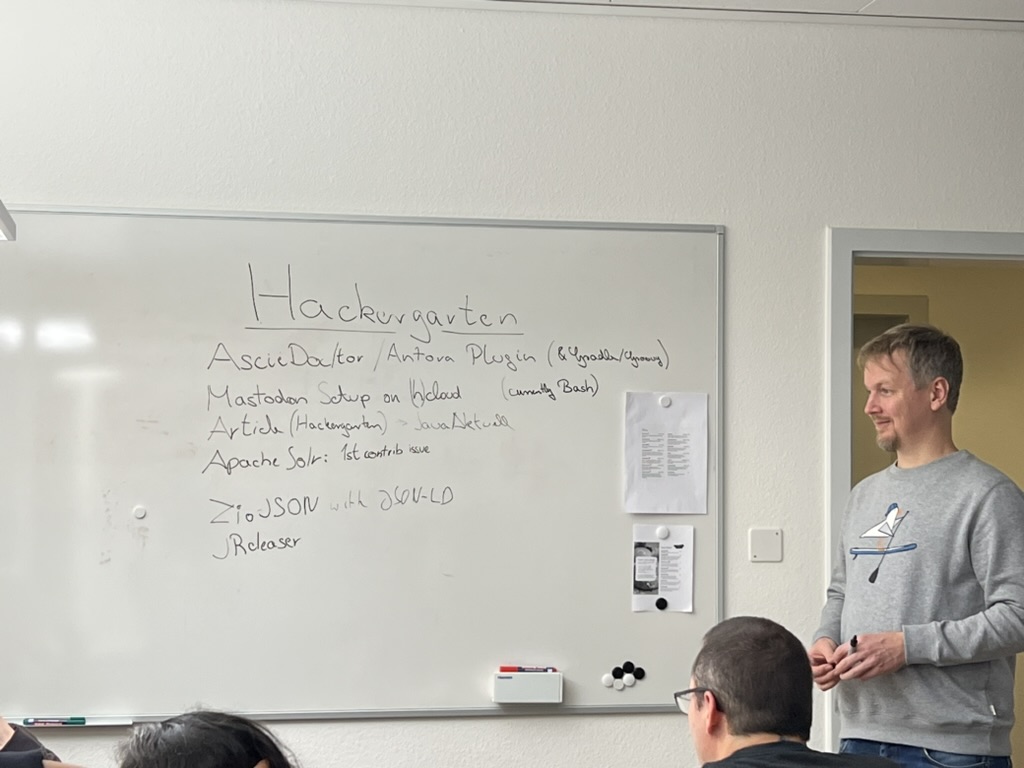 Hackergarten
AsciiDoctor / Antora Plugin (& Gradle/Groovy)
Mastodon Setup on (h)cloud (currently Bash)
Article (Hackergarten) > JavaAktuell
Apache Solr: 1st contrib issue
ZioJSON with JSON-LD
JReleaser